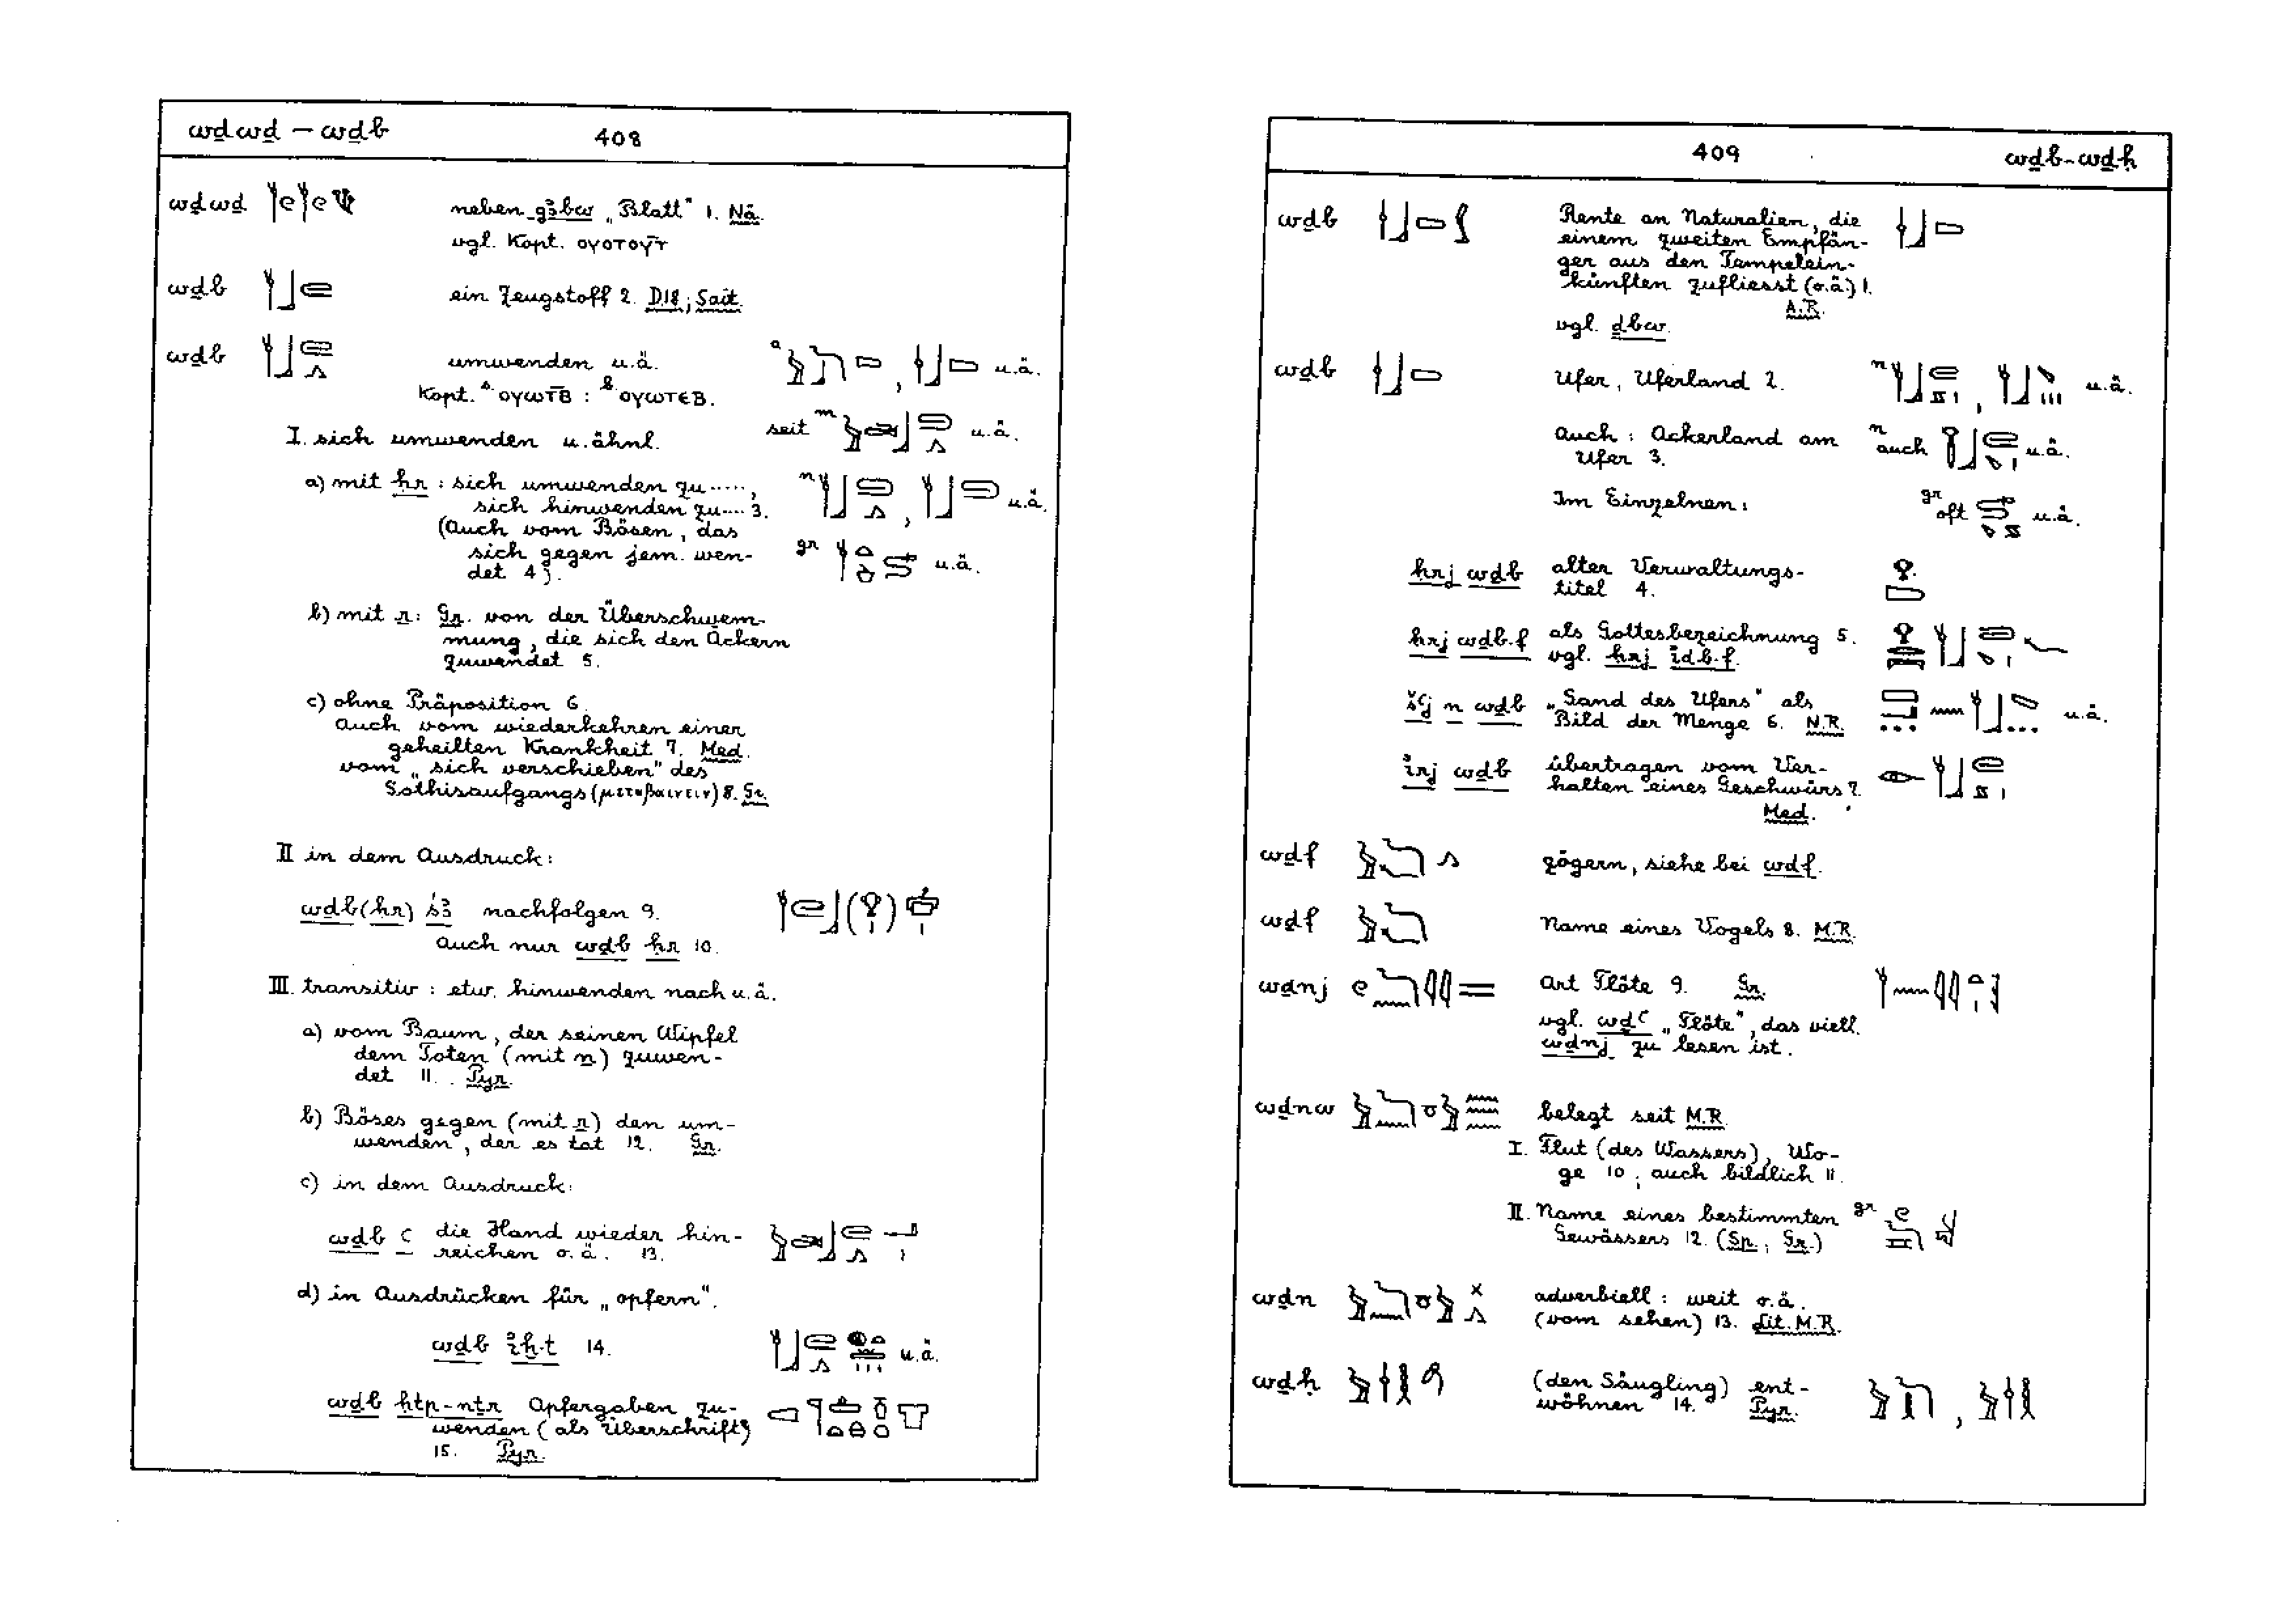 wḏwḏ – wḏb
408
wḏwḏ neben gꜣbw „Blatt" 1. Nä.
vgl. Kopt. ⲟⲩⲟⲧⲟⲩⲧ̄
wḏb ein Zeugstoff 2. D18; Sait.
wḏb umwenden u.ä. a , u.ä.
Kopt. s. ⲟⲩⲱⲧ̄ⲃ : b. ⲟⲩⲱⲧⲉⲃ.
I. sich umwenden u. ähnl. seit m u.ä.
a) mit ḥr : sich umwenden zu ....., n , u.ä.
sich hinwenden zu .... 3.
(Auch vom Bösen, das
sich gegen jem. wen- gr u.ä.
det 4).
b) mit r: Gr. von der Überschwem-
mung, die sich den Äckern
zuwendet 5.
c) ohne Präposition 6.
Auch vom wiederkehren einer
geheilten Krankheit 7. Med.
vom „sich verschieben" des
Sothisaufgangs (μεταβαινειν) 8. Gr.
II in dem Ausdruck:
wḏb (ḥr) śꜣ nachfolgen 9. ( )
auch nur wḏb ḥr 10.
III. transitiv : etw. hinwenden nach u.ä.
a) vom Baum, der seinen Wipfel
dem Toten (mit n) zuwen-
det 11. Pyr.
b) Böses gegen (mit r) den um-
wenden, der es tat 12. Gr.
c) in dem Ausdruck:
wḏb ꜥ die Hand wieder hin-
reichen o.ä. 13.
d) in Ausdrücken für „opfern".
wḏb iḫ.t 14. u.ä.
wḏb ḥtp-nṯr Opfergaben zu-
wenden (als Überschrift)
15. Pyr.
409
wḏb-wḏḥ
wḏb Rente an Naturalien, die
einem zweiten Empfän-
ger aus den Tempelein-
künften zufliesst (o.ä.) 1.
A.R.
vgl. ḏbw.
wḏb Ufer, Uferland 2. n , u.ä.
Auch : Ackerland am n auch u.ä.
Ufer 3.
Im Einzelnen: gr oft u.ä.
ḥrj wḏb alter Verwaltungs-
titel 4.
ḥrj wḏb.f als Gottesbezeichnung 5.
vgl. ḥrj idb.f.
šꜥj n wḏb „Sand des Ufers" als
Bild der Menge 6. N.R. u.ä.
irj wḏb übertragen vom Ver-
halten eines Geschwürs 7.
Med.
wḏf zögern, siehe bei wdf.
wḏf Name eines Vogels 8. M.R.
wḏnj Art Flöte 9. Gr.
vgl. wḏꜥ „Flöte", das viell.
wḏnj zu lesen ist.
wḏnw belegt seit M.R.
I. Flut (des Wassers), Wo-
ge 10; auch bildlich 11.
II. Name eines bestimmten gr
Gewässers 12. (Sp.; Gr.)
wḏn adverbiell : weit o.ä.
(vom sehen) 13. Lit. M.R.
wḏḥ (den Säugling) ent- ,
wöhnen 14. Pyr.